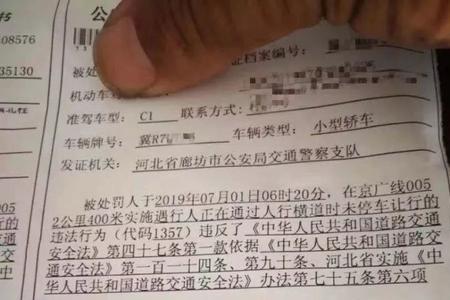 公
08576
35130
被处
证档案编号：
机动车
准驾车型： C1 联系方式：
车辆牌号： 冀R7 车辆类型： 小型轿车
发证机关： 河北省廊坊市公安局交通警察支队
被处罚人于2019年07月01日06时20分，在京广线005
2公里400米实施遇行人正在通过人行横道时未停车让行的
违法行为（代码1357）违反了《中华人民共和国道路交通
安全法》第四十七条第一款依据《中华人民共和国道路交
通安全法》第一百一十四条、第九十条、河北省实施《中
华人民共和国道路交通安全法》办法第七十五条第六项